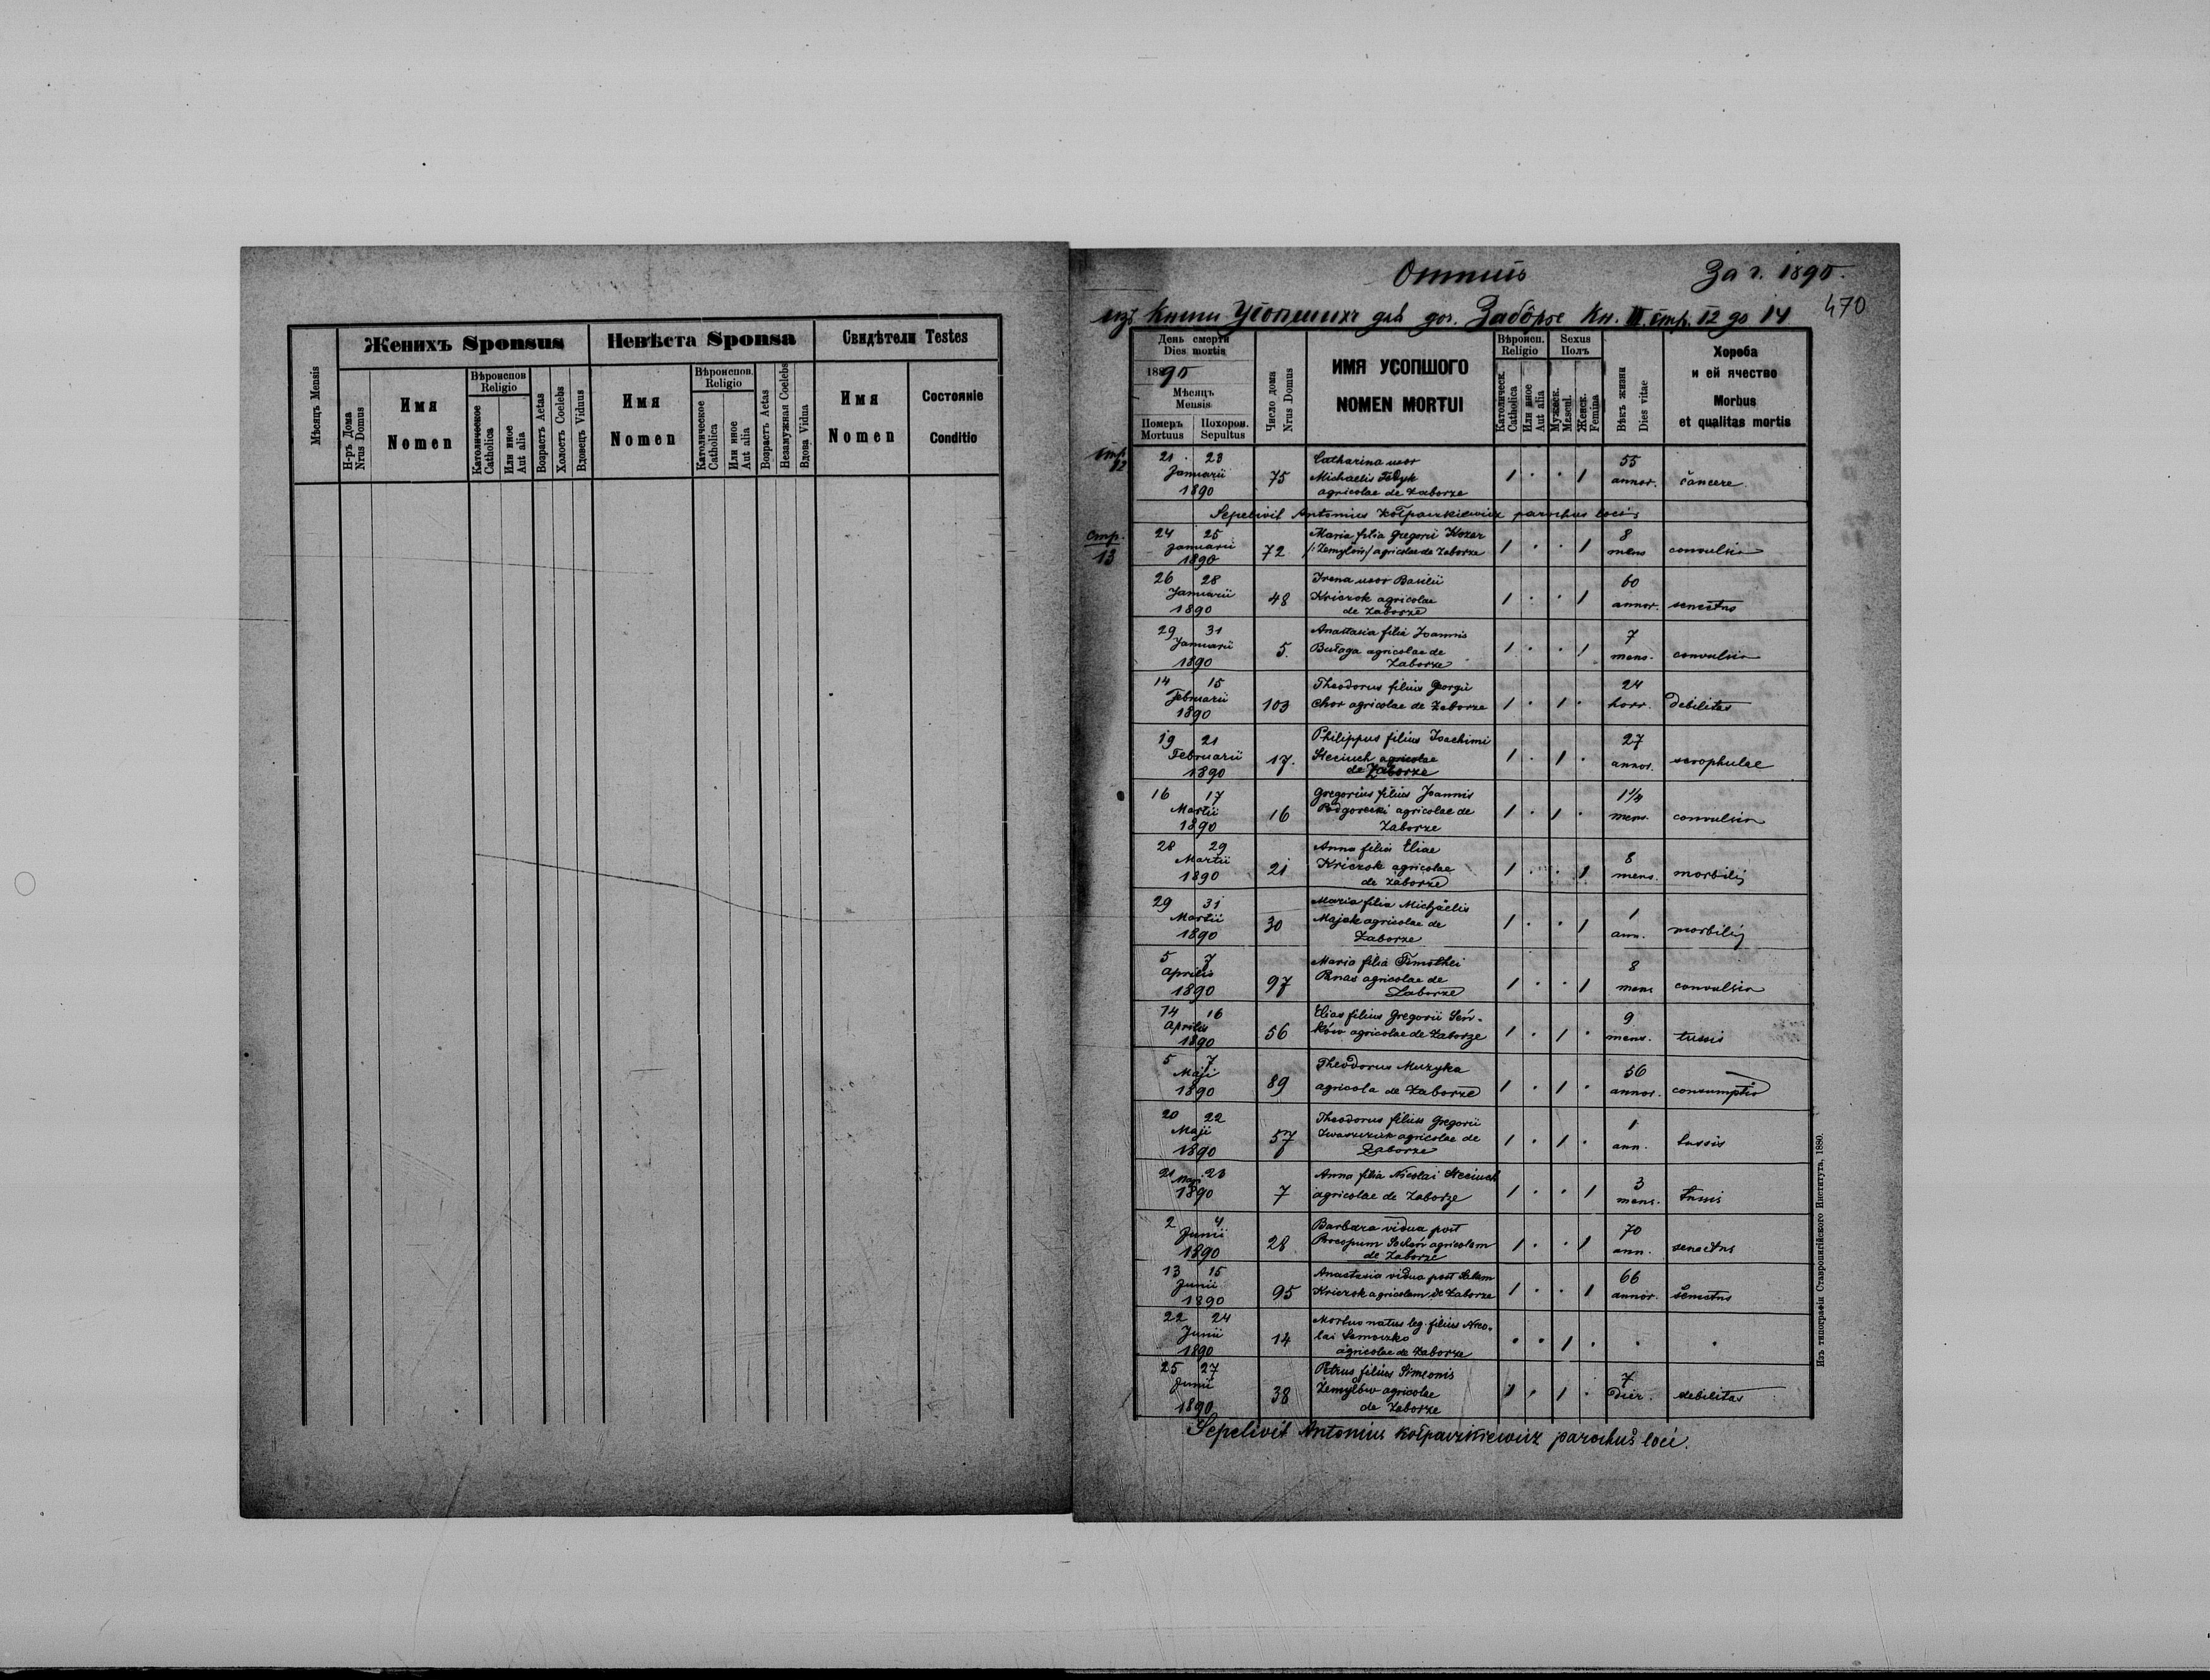 Женихъ Sponsus
Невѣста Sponsa
Свидѣтели Testes
Мѣсяцъ Mensis
Н-ръ Дома
Nrus Domus
Имя
Nomen
Вѣроиспов
Religio
Католическое
Catholica
Или иное
Aut alia
Возрастъ Aetas
Холостъ Coelebs
Вдовецъ Viduus
Имя
Nomen
Вѣроиспов.
Religio
Католическое
Catholica
Или иное
Aut alia
Возрастъ Aetas
Незамужная Coelebs
Вдова Vidua
Имя
Nomen
Состояніе
Conditio
За г. 1890.
470
изъ Книги Усопшихъ для Заборье Кн. III. стр. 12 до 14
День смерти
Dies mortis
1890
Мѣсяцъ
Mensis
Номеръ
Mortuus
Похорон.
Sepultus
Число дома
Nrus Domus
ИМЯ УСОПШОГО
NOMEN MORTUI
Вѣроисп.
Religio
Католическ.
Catholica
Или иное
Aut alia
Sexus
Полъ
Мужеск.
Mascul.
Женск.
Femina
Вѣкъ жизни
Dies vitae
Хороба
и ей ячество
Morbus
et qualitas mortis
стр. 12
21 23 Catharina uxor 55
Januarii 75 Michaelis Fedyk 1 . . 1 annor. cancere
1890 agricolae de Zaborze
Sepelivit Antonius Kołpaczkiewicz parochus loci
стр. 13
24 25 Maria filia Gregorii Kozar 8
Januarii 72 /: Zemylow/ agricolae de Zaborze 1 . . 1 mens convulsio
1890
26 28 Irena uxor Basilii 60
Januarii 48 Kriczok agricolae 1 . . 1 annor. senectus
1890 de Zaborze
29 31 Anastasia filia Joannis 7
Januarii 5. Bułaga agricolae de 1 . . 1 mens. convulsio
1890 Zaborze
14 15 Theodorus filius Georgii 24
Februarii 103 Chor agricolae de Zaborze 1 . 1 . horr. debilitas
1890
19 21 Philippus filius Joachimi 27
Februarii 17. Steciuch agricolae 1 . 1 . annor. scrophulae
1890 de Zaborze
16 17 Gregorius filius Joannis 1 1/4
Martii 16 Podgorecki agricolae de 1 . 1 . mens. convulsio
1890 Zaborze
28 29 Anna filia Eliae 8
Martii 21 Kriczok agricolae 1 . . 1 mens. morbilij
1890 de Zaborze
29 31 Maria filia Michaelis 1
Martii 30 Majak agricolae de 1 . . 1 ann. morbilij
1890 Zaborze
5 7 Maria filia Timothei 8
Aprilis 97 agricolae de 1 . . 1 mens convulsio
1890 Zaborze
14 16 Elias filius Gregorii Seń- 9
Aprilis 56 ków agricolae de Zaborze 1 . 1 . mens. tussis
1890
5 7 Theodorus Muzyka 56
Maji 89 agricola de Zaborze 1 . 1 . annor. consumptio
1890
20 22 Theodorus filius Gregorii 1
Maji 57 agricolae de 1 . 1 . ann. tussis
1890 Zaborze
21 23 Anna filia Nicolai Steciuch 3
Maji 7 agricolae de Zaborze 1 . . 1 mens. tussis
1890
2 4 Barbara vidua post 70
Junii 28 Procopum agricolam 1 . . 1 ann. senectus
1890 de Zaborze
13 15 Anastasia vidua post 66
Junii 95 Kriczok agricolam de Zaborze 1 . . 1 annor. senectus
1890
22 24 Mortuo natus leg. filius Nico-
Junii 14 lai . . 1 . . .
1890 agricolae de Zaborze
25 27 Petrus filius Simeonis 7
Junii 38 Zemylow agricolae 1 . 1 . dier. debilitas
1890 de Zaborze
Sepelivit Antonius Kołpaczkiewicz parochus loci.
Изъ типографіи Ставропигійского Института, 1880.